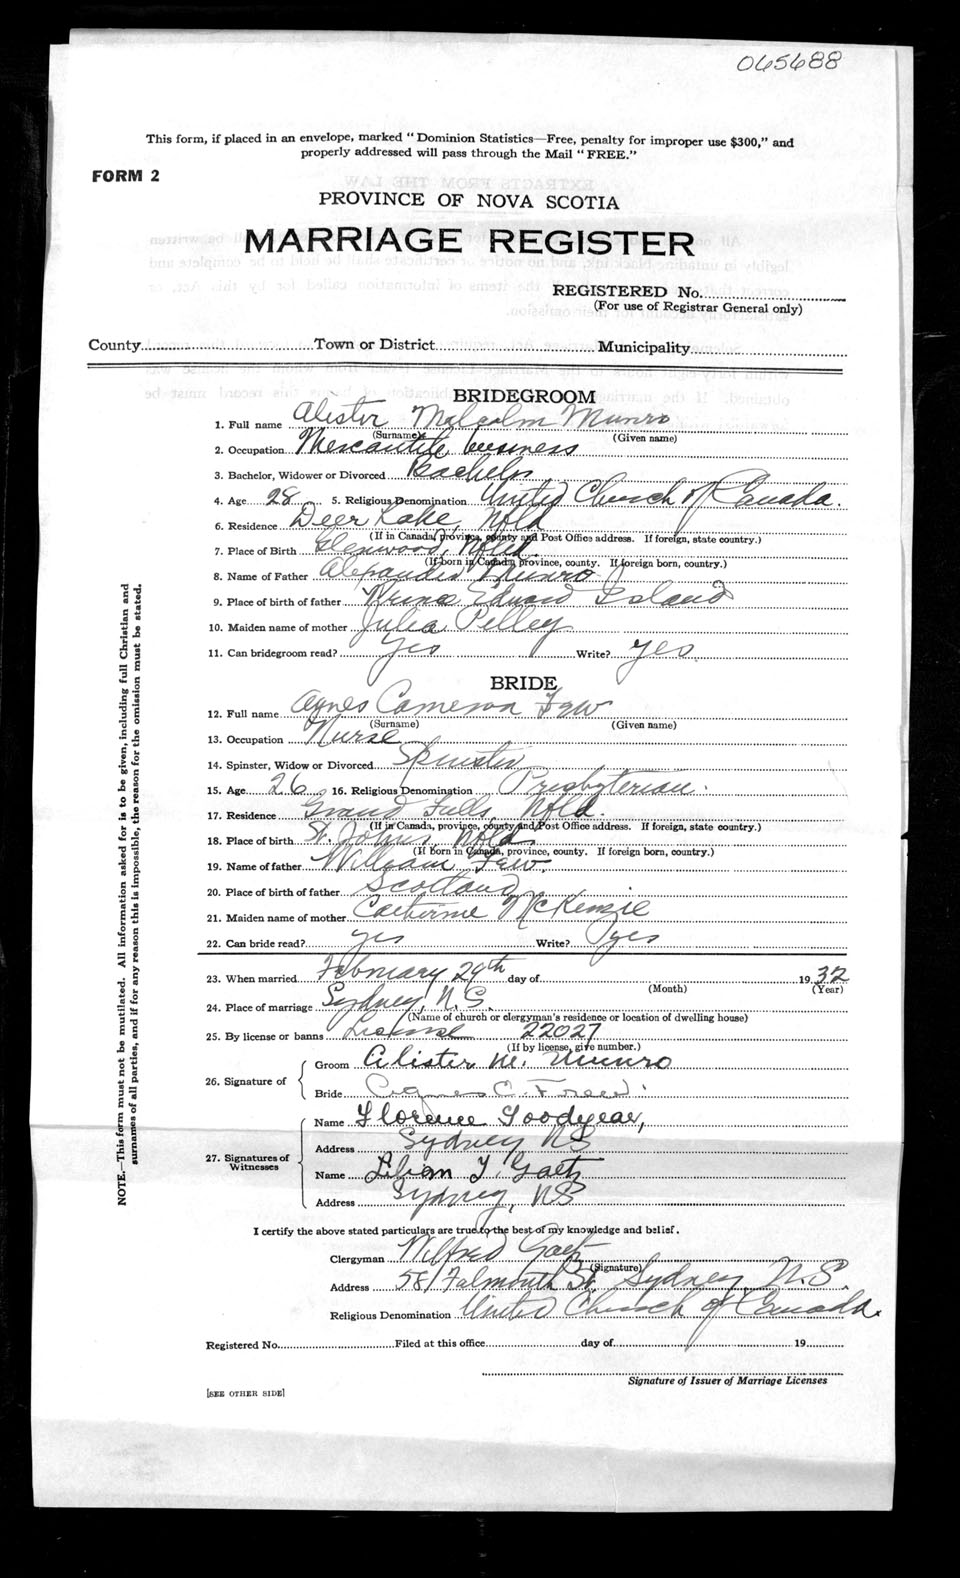 065688
This form, if placed in an envelope, marked "Dominion Statistics—Free, penalty for improper use $300," and
properly addressed will pass through the Mail "FREE."
FORM 2
PROVINCE OF NOVA SCOTIA
MARRIAGE REGISTER
REGISTERED No.
(For use of Registrar General only)
County Town or District Municipality
BRIDEGROOM
1. Full name Alister Malcolm Munro
(Surname) (Given name)
2. Occupation Mercantile business
3. Bachelor, Widower or Divorced Bachelor
4. Age 28 5. Religious Denomination United Church of Canada.
6. Residence Deer Lake, Nfld
(If in Canada, province, county and Post Office address. If foreign, state country.)
7. Place of Birth Glenwood, Nfld.
(If born in Canada, province, county. If foreign born, country.)
8. Name of Father Alexander Munro
9. Place of birth of father Prince Edward Island
10. Maiden name of mother Julia Pelley
11. Can bridegroom read? Yes Write? yes
BRIDE
12. Full name Agnes Cameron Few
(Surname) (Given name)
13. Occupation Nurse
14. Spinster, Widow or Divorced Spinster
15. Age 26 16. Religious Denomination Presbyterian.
17. Residence Grand Falls Nfld.
(If in Canada, province, county and Post Office address. If foreign, state country.)
18. Place of birth St. Johns, Nfld.
(If born in Canada, province, county. If foreign born, country.)
19. Name of father William Few.
20. Place of birth of father Scotland
21. Maiden name of mother Catherine McKenzie
22. Can bride read? yes Write? yes
23. When married February 29th day of 1932
(Month) (Year)
24. Place of marriage Sydney, N.S.
(Name of church or clergyman's residence or location of dwelling house)
25. By license or banns License 22027
(If by license, give number.)
26. Signature of
Groom Alister M. Munro
Bride Agnes C. Frew
27. Signatures of Witnesses
Name Florence Goodyear,
Address Sydney NS
Name Lilian Y. Gaetz
Address Sydney, NS
I certify the above stated particulars are true to the best of my knowledge and belief.
Clergyman Wilfred Gaetz
(Signature)
Address 58 Falmouth St, Sydney, N.S.
Religious Denomination United Church of Canada.
Registered No. Filed at this office day of 19
Signature of Issuer of Marriage Licenses
[SEE OTHER SIDE]
NOTE.—This form must not be mutilated. All information asked for is to be given, including full Christian and
surnames of all parties, and if for any reason this is impossible, the reason for the omission must be stated.